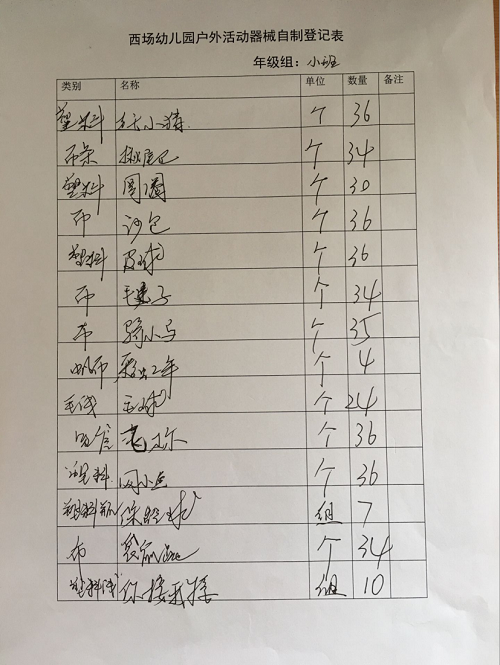 西场幼儿园户外活动器械自制登记表
年级组：小班
类别 名称 单位 数量 备注
塑料 小猪 个 36
布条 揪尾巴 个 34
塑料 圈圈 个 30
布 沙包 个 36
塑料 皮球 个 36
布 毽子 个 34
布 骑小马 个 35
帆布 个 4
毛线 毛球 个 24
个 36
塑料 网小鱼 个 36
塑料瓶 保龄球 组 7
布 个 34
塑料 你接我接 组 10